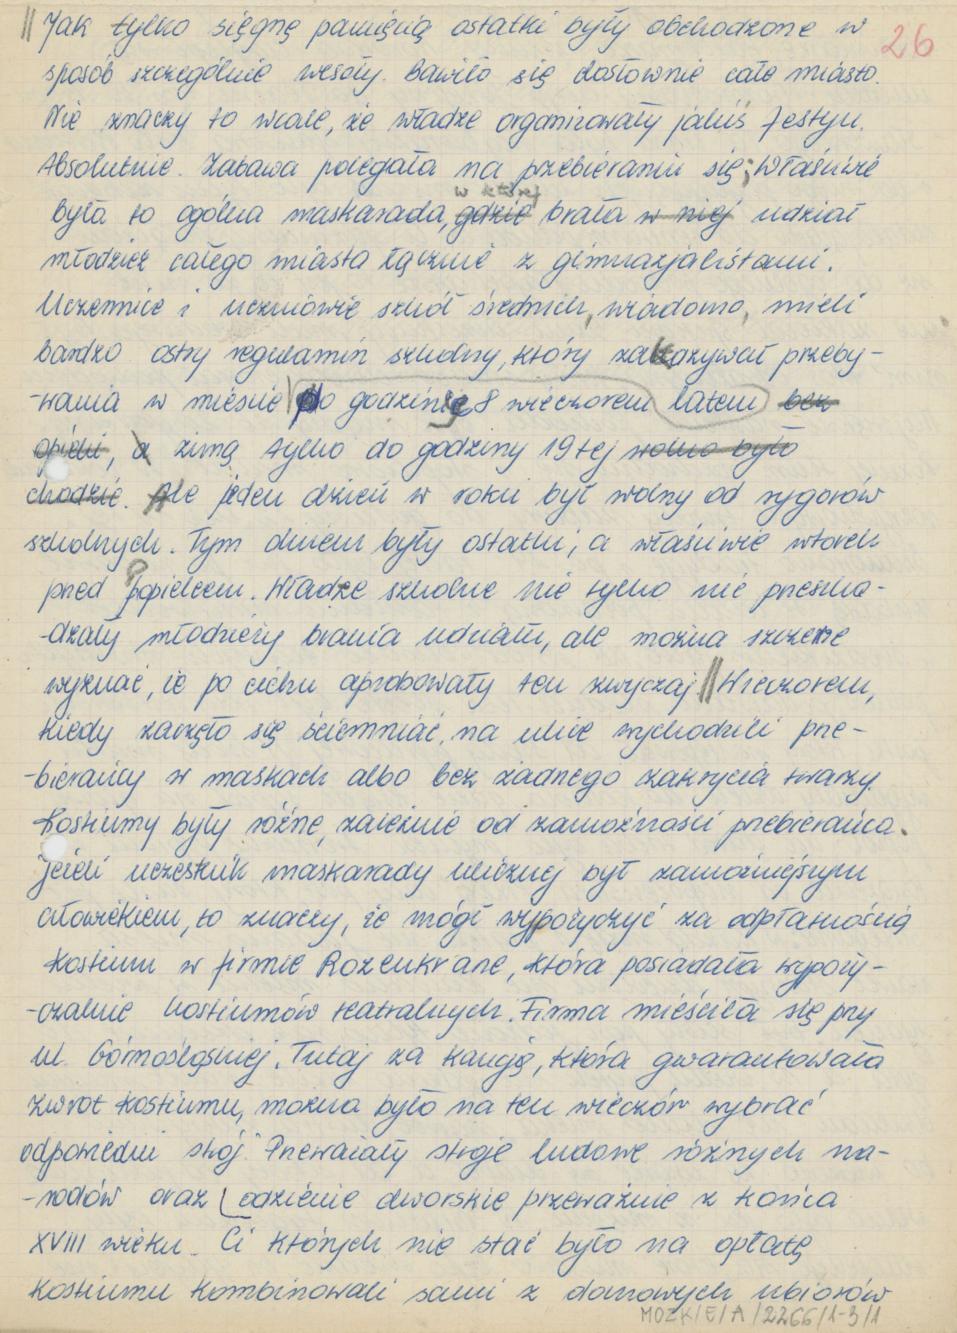 Jak tylko sięgnę pamięcią ostatki były obchodzone w
26
sposób szczególnie wesoły. Bawiło się dosłownie całe miasto.
Nie znaczy to wcale, że władze organizowały jakiś festyn.
Absolutnie. Zabawa polegała na przebieraniu się; Właściwie
w której
była to ogólna maskarada, gdzie brała w niej udział
młodzież całego miasta łącznie z gimnazjalistami.
Uczennice i uczniowie szkół średnich, wiadomo, mieli
bardzo ostry regulamin szkolny, który zakazywał przeby-
-wania w mieście po godzinie 8 wieczorem latem bez
opieki, a zimą tylko do godziny 19tej wolno było
chodzić. Ale jeden dzień w roku był wolny od rygorów
szkolnych. Tym dniem były ostatki, a właściwie wtorek
przed Popielcem. Władze szkolne nie tylko nie przeszka-
-dzały młodzieży brania udziału, ale można szczerze
wyznać, że po cichu aprobowały ten zwyczaj || Wieczorem,
kiedy zaczęło się ściemniać, na ulice wychodzili prze-
-bierańcy w maskach albo bez żadnego zakrycia twarzy.
Kostiumy były różne, zależnie od zamożności przebierańca.
Jeżeli uczestnik maskarady ulicznej był zamożniejszym
człowiekiem, to znaczy, że mógł wypożyczyć za odpłatnością
kostium w firmie Rozenkranc, która posiadała wypoży-
-czalnie kostiumów teatralnych. Firma mieściła się przy
ul. Górnośląskiej. Tutaj za kaucją, która gwarantowała
zwrot kostiumu, można było na ten wieczór wybrać
odpowiedni strój. Przeważały stroje ludowe różnych na-
-rodów oraz odzienie dworskie przeważnie z końca
XVIII wieku. Ci których nie stać było na opłatę
kostiumu kombinowali sami z domowych ubiorów
MOZK/E/A/2266/1-3/1